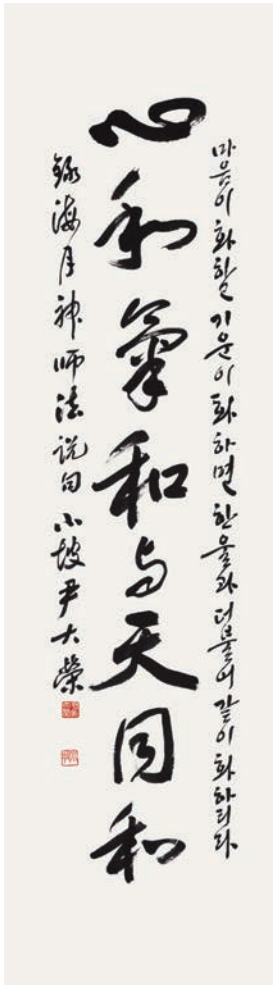 마음이 화할 기운이 화하면 한울과 더불어 같이 화하리라
心和氣和与天同和
錄海月神師法説句 小坡 尹大榮